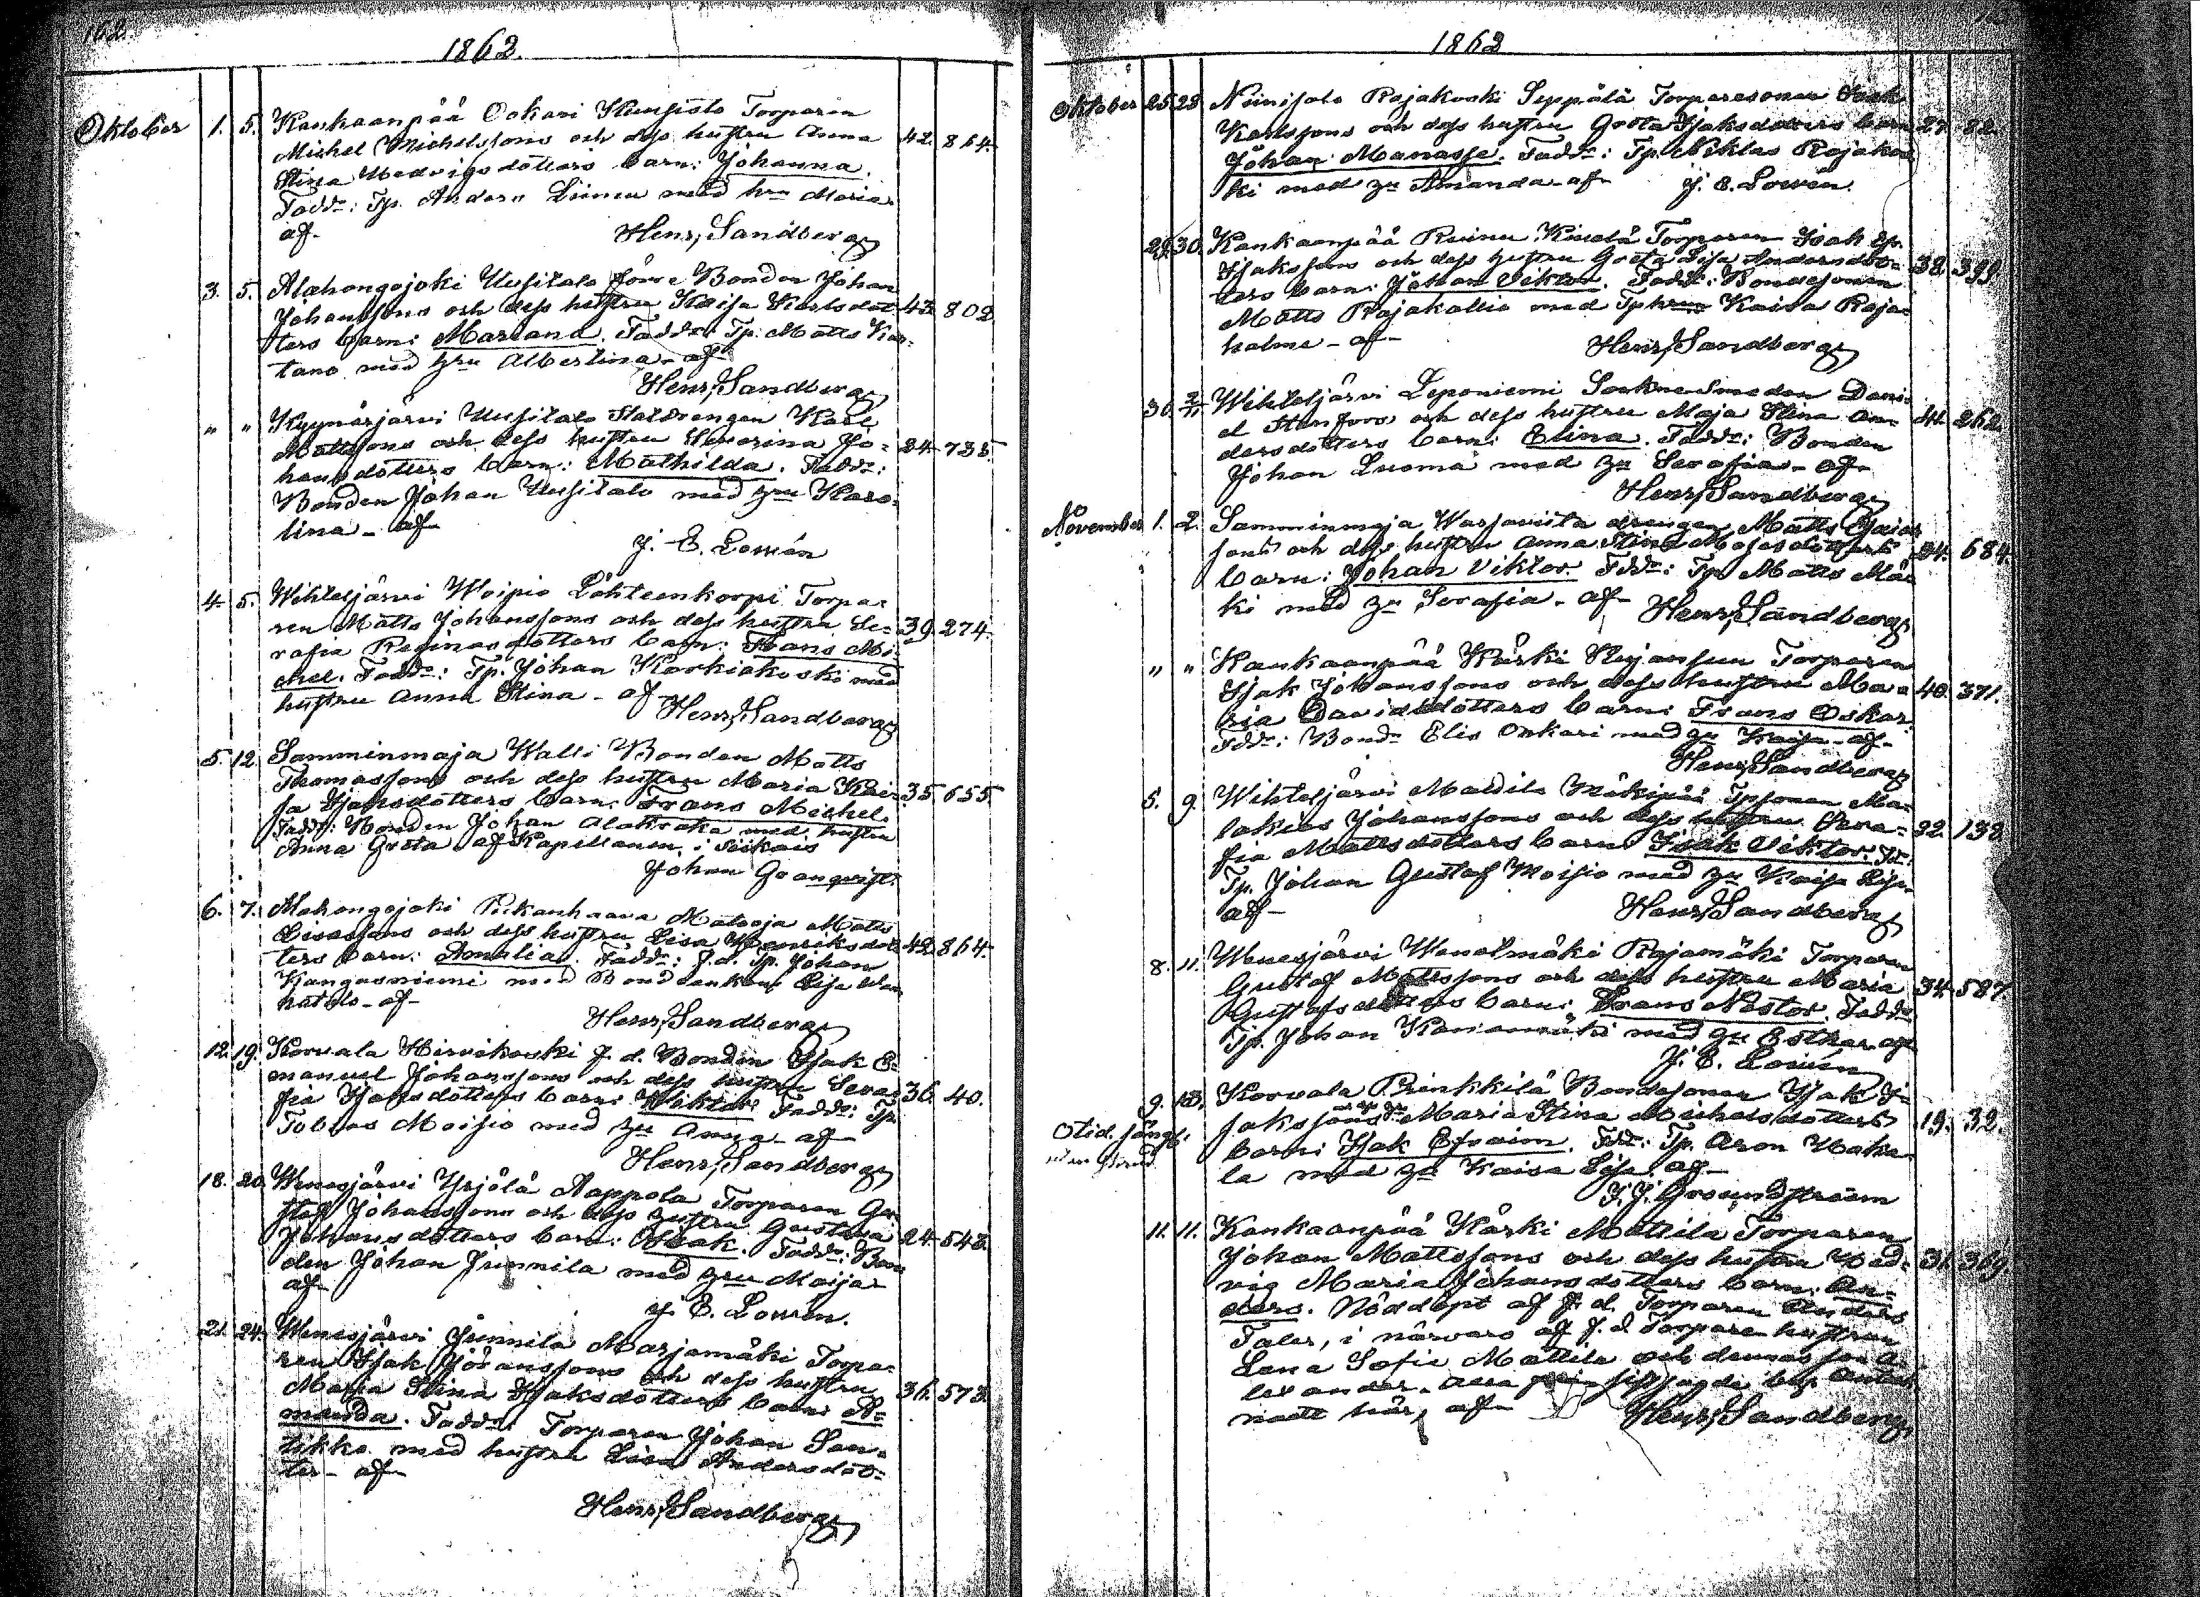 162.
1862.
Oktober 1. 5. Kankaanpää Onkari Kuusisto Torparen
Michel Michelssons och dess hustru Anna 42. 864.
Stina Hedvigsdotters barn: Johanna.
Fadd: Tp. Anders Liinu med hu Maria
af Henr. Sandberg
3. 5. Alahongojoki Uusitalo Bonden Johan
Johanssons och dess hustru Kaisa Karlsdot- 43. 802
ters barn: Mariana. Fadd: Tp. Matts Kar-
tano med hu Albertina af
Henr. Sandberg
" " Kyynärjärvi Uusitalo Karl
Mattssons och dess hustru Severina Jo- 24. 735
hansdotters barn: Mathilda. Fadd:
Bonden Johan Uusitalo med hru Karo-
lina af
J. E. Lowén
4. 5. Wihteljärvi Woipio Lähteenkorpi Torpa-
ren Matts Johanssons och dess hustru Se- 39. 274.
rafia Reginasdotters barn: Frans Mi-
chel. Fadd: Tp. Johan Korkiakoski med
hustru Anna Stina af
Henr. Sandberg
5. 12. Samminmaja Walli Bonden Matts
Thomassons och dess hustru Maria Kai- 35. 655.
sa Isaksdotters barn: Frans Michel.
Fadd: Bonden Johan Alakraka med hustru
Anna Greta af Kapellanen i Siikais
Johan Granqvist.
6. 7. Alahongojoki Matts
och dess hustru Lisa Henriksdot- 42. 864.
ters barn: Amalia. Fadd: f.d. Tp. Johan
Kangasniemi med Lisa
af
Henr. Sandberg
12. 19. Korvala Hirvikoski f. d. Bonden Isak E-
manuel Johanssons och dess hustru Sera- 36. 40.
fia Isaksdotters barn: Wiktor. Fadd: Tp.
Tobias Moisio med hu Anna af
Henr. Sandberg
18. 20. Wenesjärvi Yrjölä Aappola Torparen Gu-
staf Johanssons och dess hustru Gustava 24. 543.
Johansdotters barn: Isak. Fadd: Bon-
den Johan Junnila med hru Maija
af
J. E. Lowén.
21. 24. Wenesjärvi Junnila Marjamäki Torpa-
ren Isak Johanssons och dess hustru 36. 573.
Maria Stina Isaksdotters barn: A-
manda. Fadd: Torparen Johan San-
tikko med hustru Lisa Andersdot-
ter af
Henr. Sandberg
1862
Oktober 25. 28. Niinisalo Rajakoski Seppälä Torparesonen Isak
Karlssons och dess hustru Greta Isaksdotters barn 27. 82.
Johan Manasse. Fadd: Tp. Niklas Rajakos-
ki med hu Amanda af J. E. Lowén.
29. 30. Kankaanpää Ruinu Torparen Isak
Isakssons och dess hustru Greta Lisa Andersdot- 38. 399.
ters barn: Johan Viktor. Fadd: Bondesonen
Matts Rajakallio med Tphru Kaisa Raja-
halme af Henr. Sandberg
30. 2/11 Wihteljärvi Leponiemi Sockne Smeden Dani-
el och dess hustru Maja Stina An- 41. 262.
dersdotters barn: Elina. Fadd: Bonden
Johan Luoma med hu Serafia af
Henr. Sandberg
November 1. 2. Samminmaja drengen Matts
sons och dess hustru Anna Stina 24. 684.
barn: Johan Viktor. Fdd: Tp Matts Mä-
ki med hu Serafia af Henr. Sandberg
" " Kankaanpää Kärki Torparen
Isak Johanssons och dess hustru Ma- 40. 371.
ria Davidsdotters barn: Frans Oskar.
Fdd: Bond Elis Onkari med hu Kaisa af
Henr. Sandberg
5. 9. Wihteljärvi Mattila Mäkipää Tpsonen Ma-
lakias Johanssons och dess hustru Sera- 22. 138
fia Mattsdotters barn: Isak Viktor. Fd:
Tp. Johan Gustaf Moisio med hu Kaisa Lisa
af Henr. Sandberg
8. 11. Wenesjärvi Rajamäki Torparen
Gustaf Mattssons och dess hustru Maria 34. 587.
Gustafsdotters barn: Frans Nestor. Fadd:
Tp. Johan med hu Esther af
J. E. Lowén
9. 13. Korvala Prinkkilä Bondesonen Isak I-
sakssons Maria Stina Michelsdotters 19. 32.
Otid. sängl. barn: Isak Efraim. Fdd: Tp. Aron Koke-
la med hu Kaisa Lisa af
Grosundström
11. 11. Kankaanpää Kärki Mattila Torparen
Johan Mattssons och dess hustru Hed- 31. 369.
vig Maria Johansdotters barn: An-
ders. Nöddöpt af f. d. Torparen Anders
Taler, i närvaro af f. d. Torpare hustrun
Lena Sofia Mattila och dennas son A-
lexander.
af Henr. Sandberg